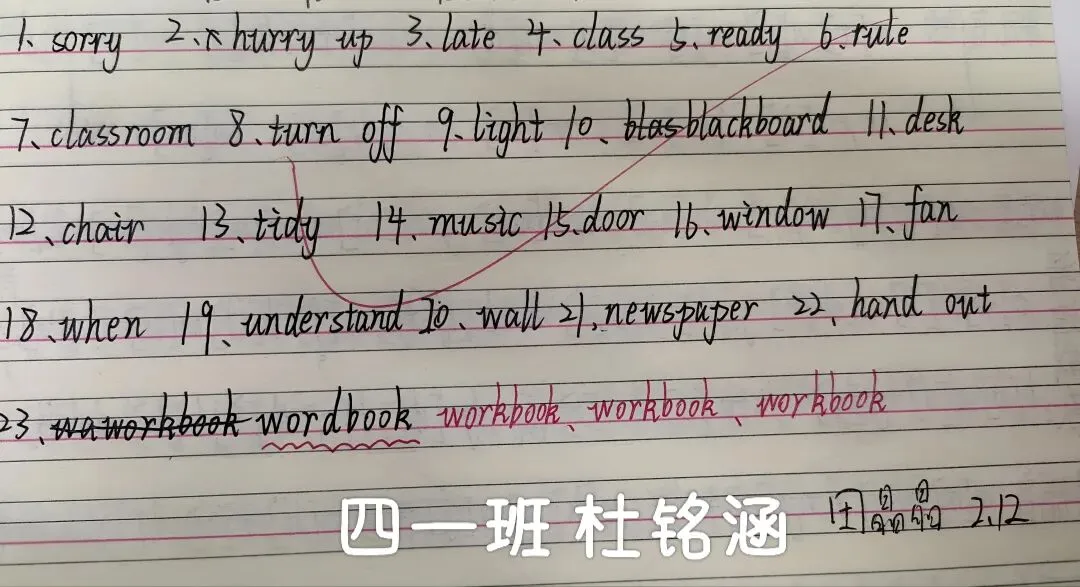 1、sorry 2、hurry up 3、late 4、class 5、ready 6、rule
7、classroom 8、turn off 9、light 10、blas blackboard 11、desk
12、chair 13、tidy 14、music 15、door 16、window 17、fan
18、when 19、understand 20、wall 21、newspaper 22、hand out
23、waworkbook wordbook workbook、workbook、workbook
四一班 杜铭涵
2.12